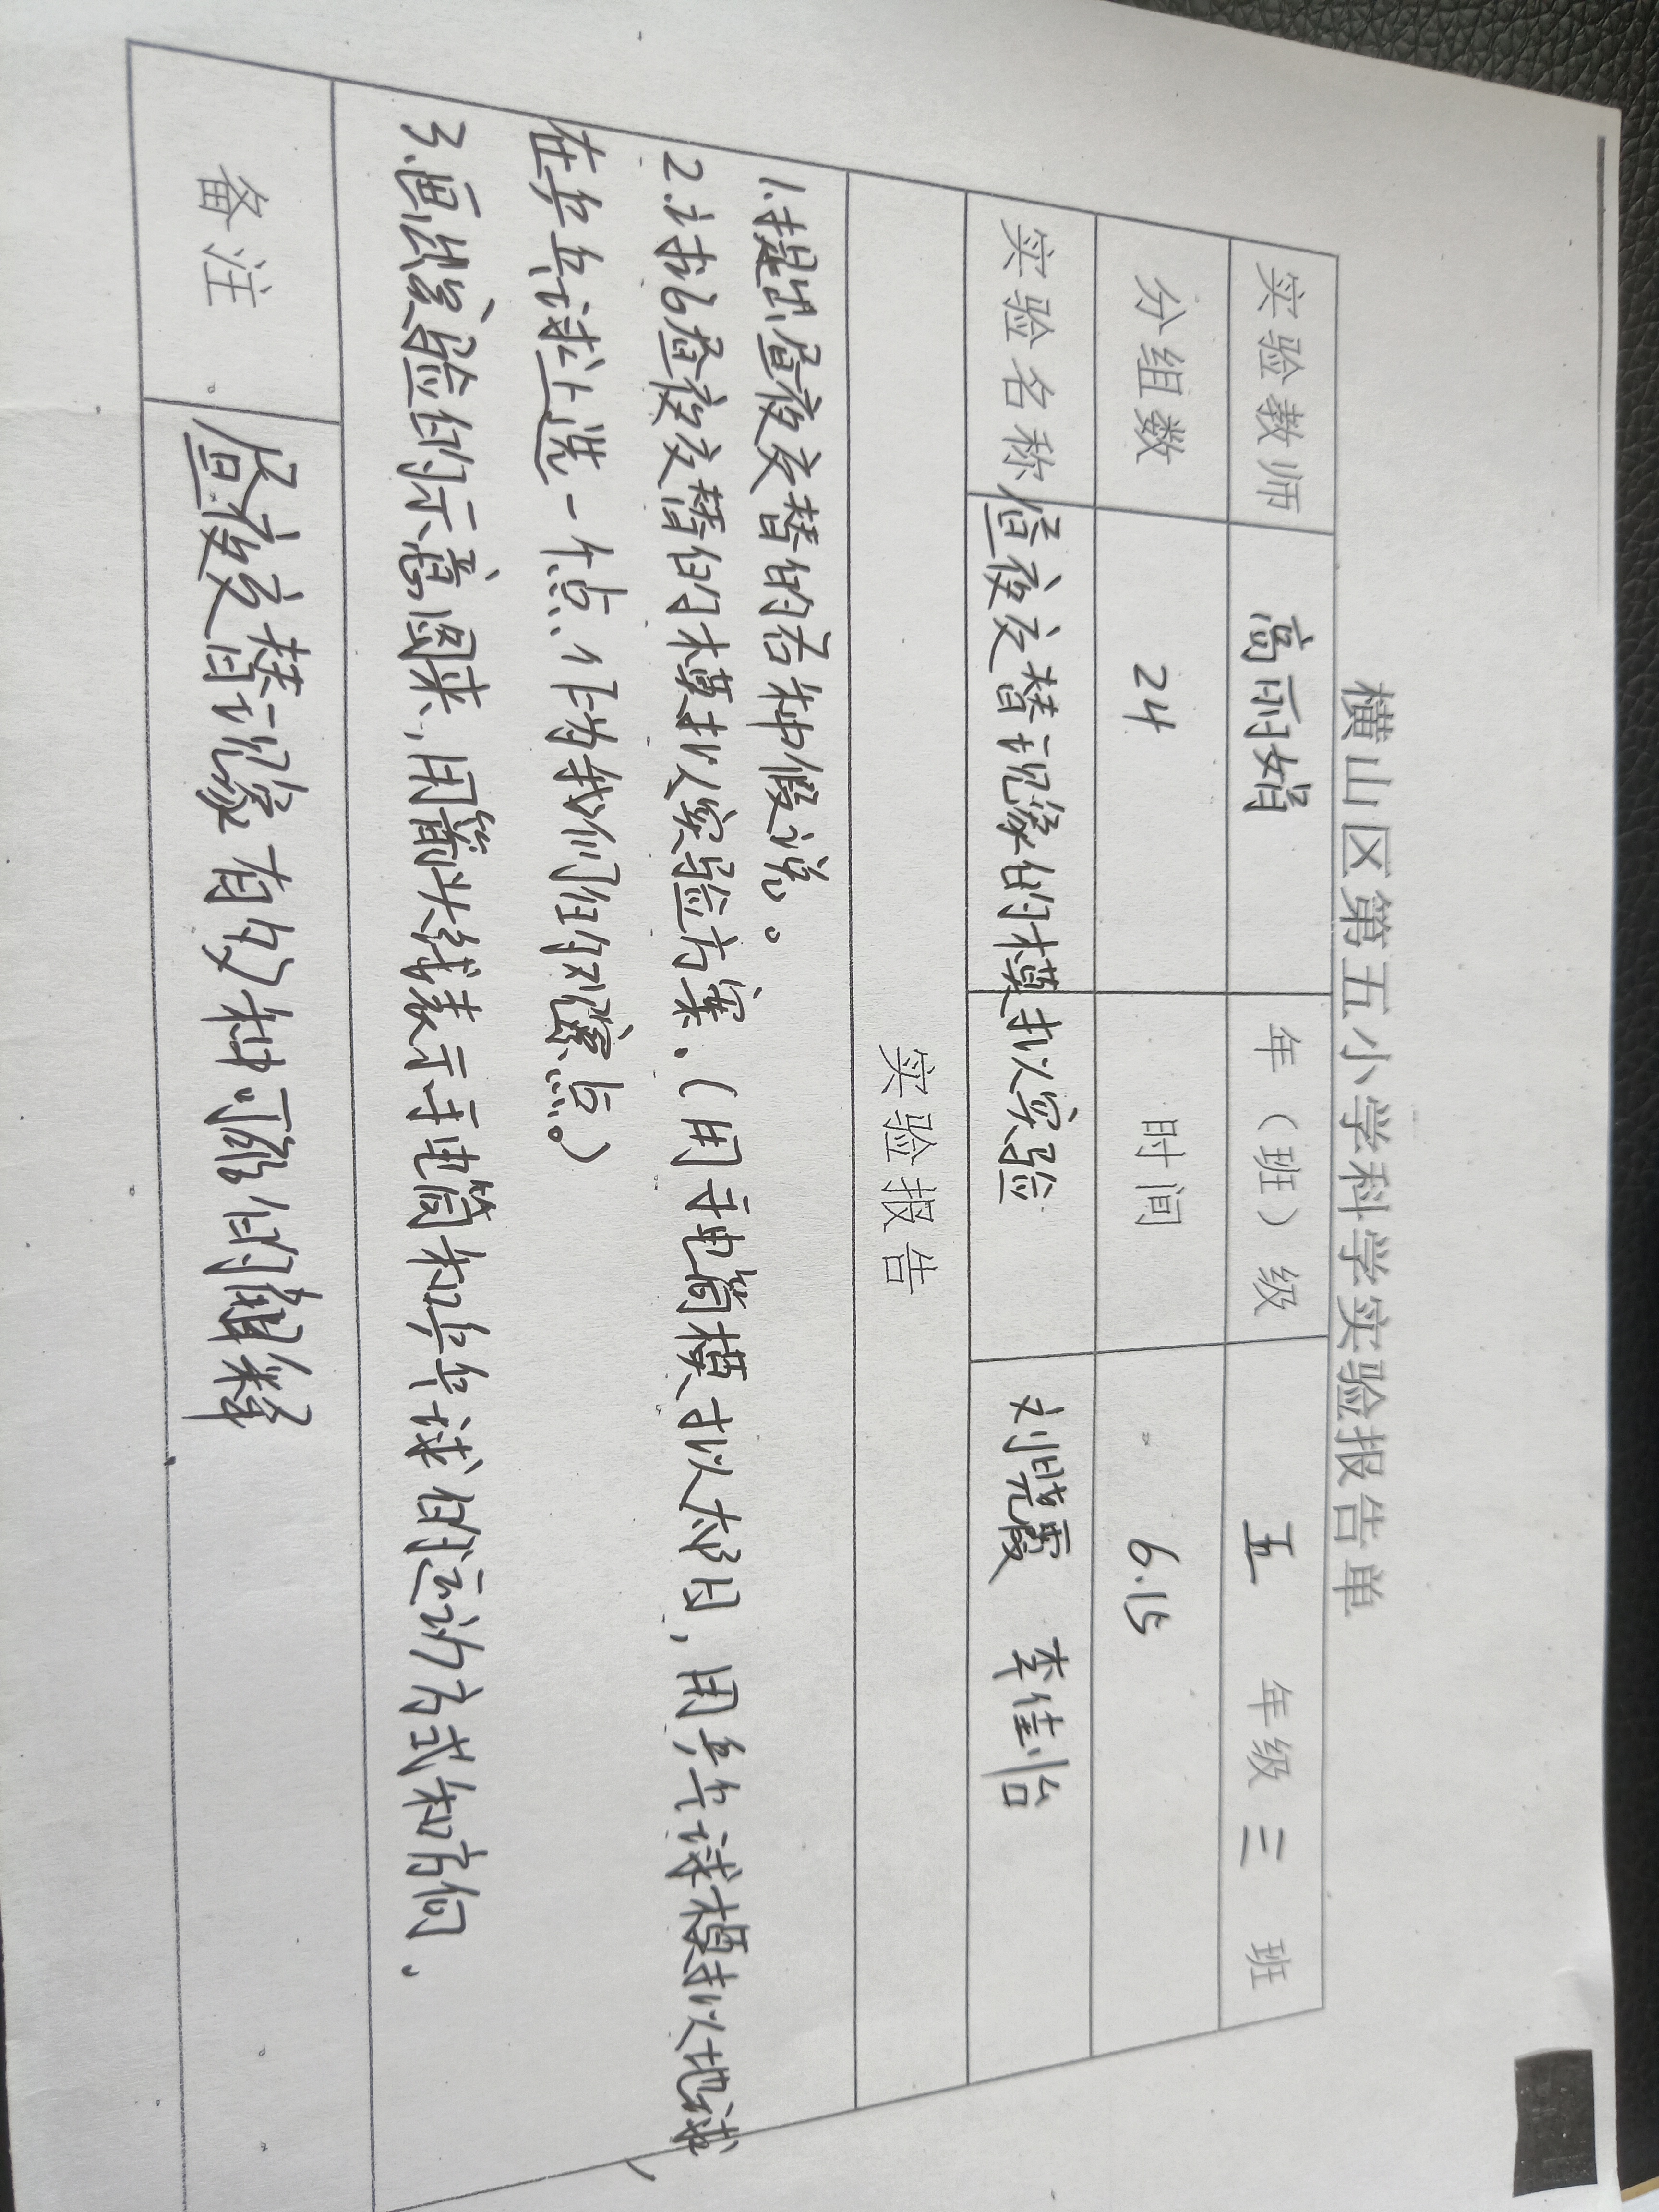 横山区第五小学科学实验报告单
实验教师 高丽娟 年（班）级 五 年级 三 班
分组数 24 时间 6.15
实验名称 昼夜交替现象的模拟实验 刘晓霞 李佳怡
实验报告
1.提出昼夜交替的各种假说。
2.讨论昼夜交替的模拟实验方案.（用手电筒模拟太阳，用乒乓球模拟地球，
在乒乓球上选一个点、作为我们的观察点。）
3.画出实验的示意图来，用箭头线表示手电筒和乒乓球的运动方式和方向.
备注 昼夜交替现象有多种可能的解释